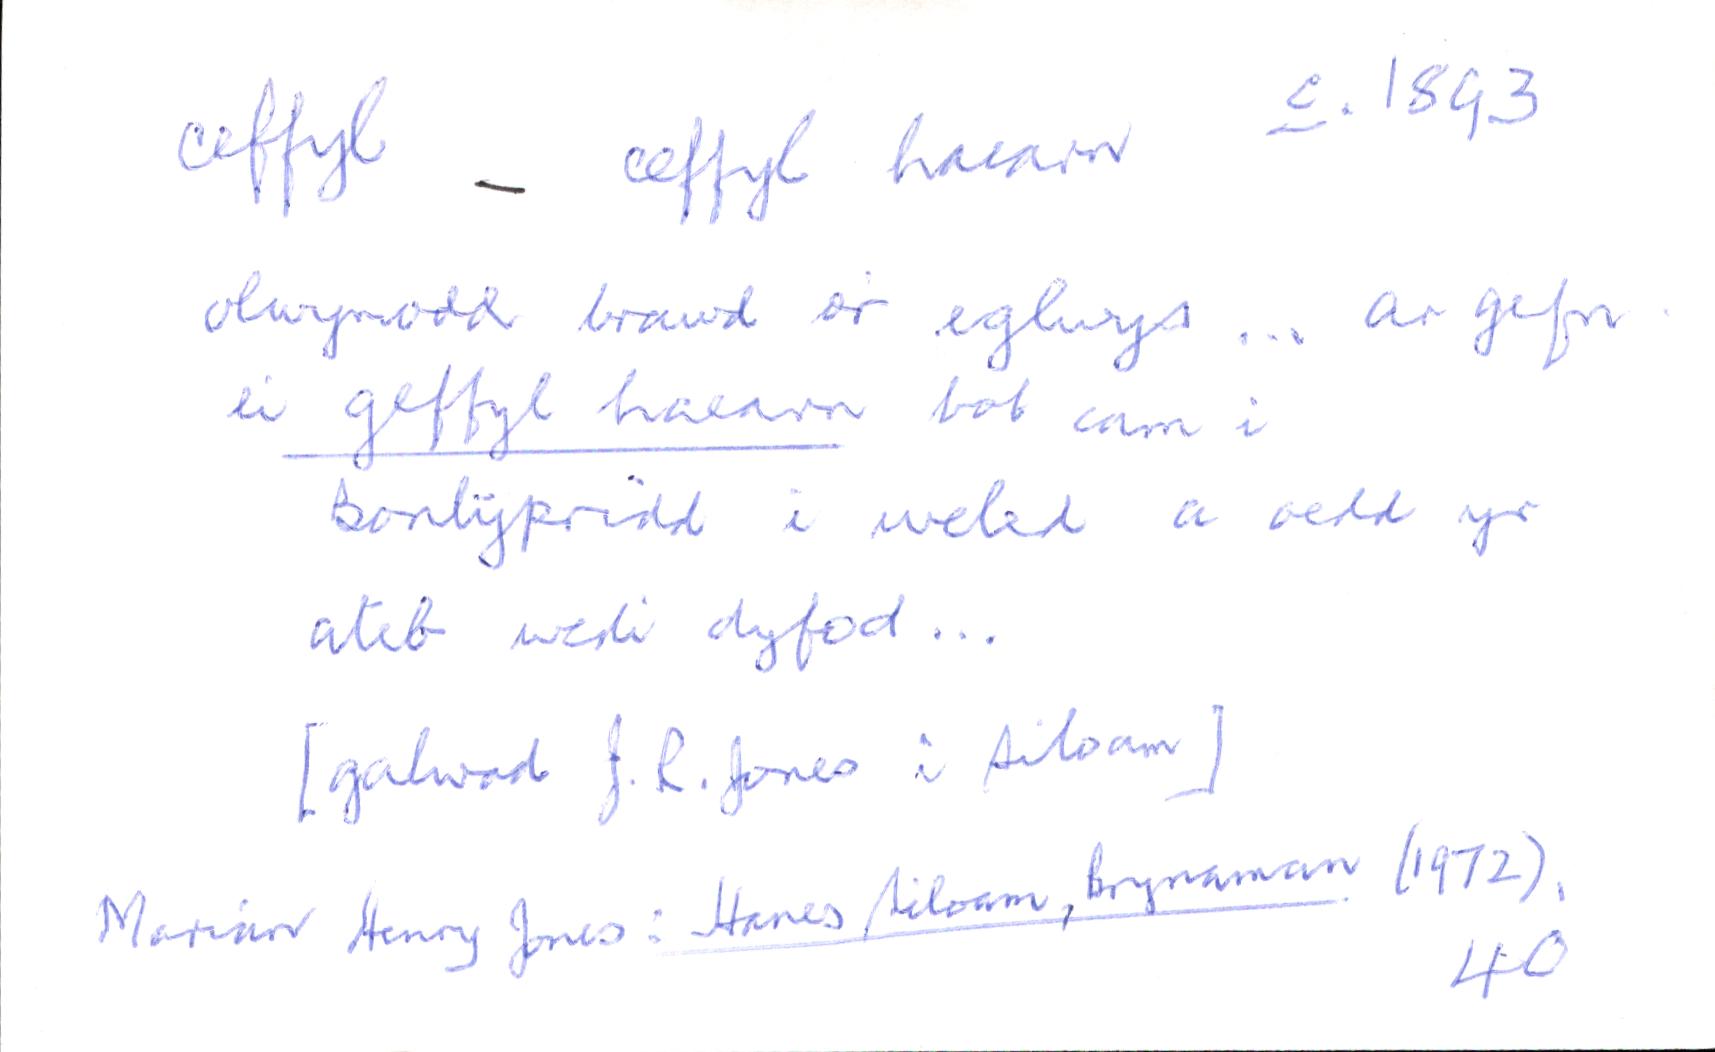 ceffyl – ceffyl haearn c. 1893
olwynodd brawd o'r eglwys ... ar gefn
ei geffyl haearn bob cam i
Bontypridd i weled a oedd yr
ateb wedi dyfod...
[galwad J. R. Jones i Siloam]
Marian Henry Jones: Hanes Siloam, Brynaman (1972),
40